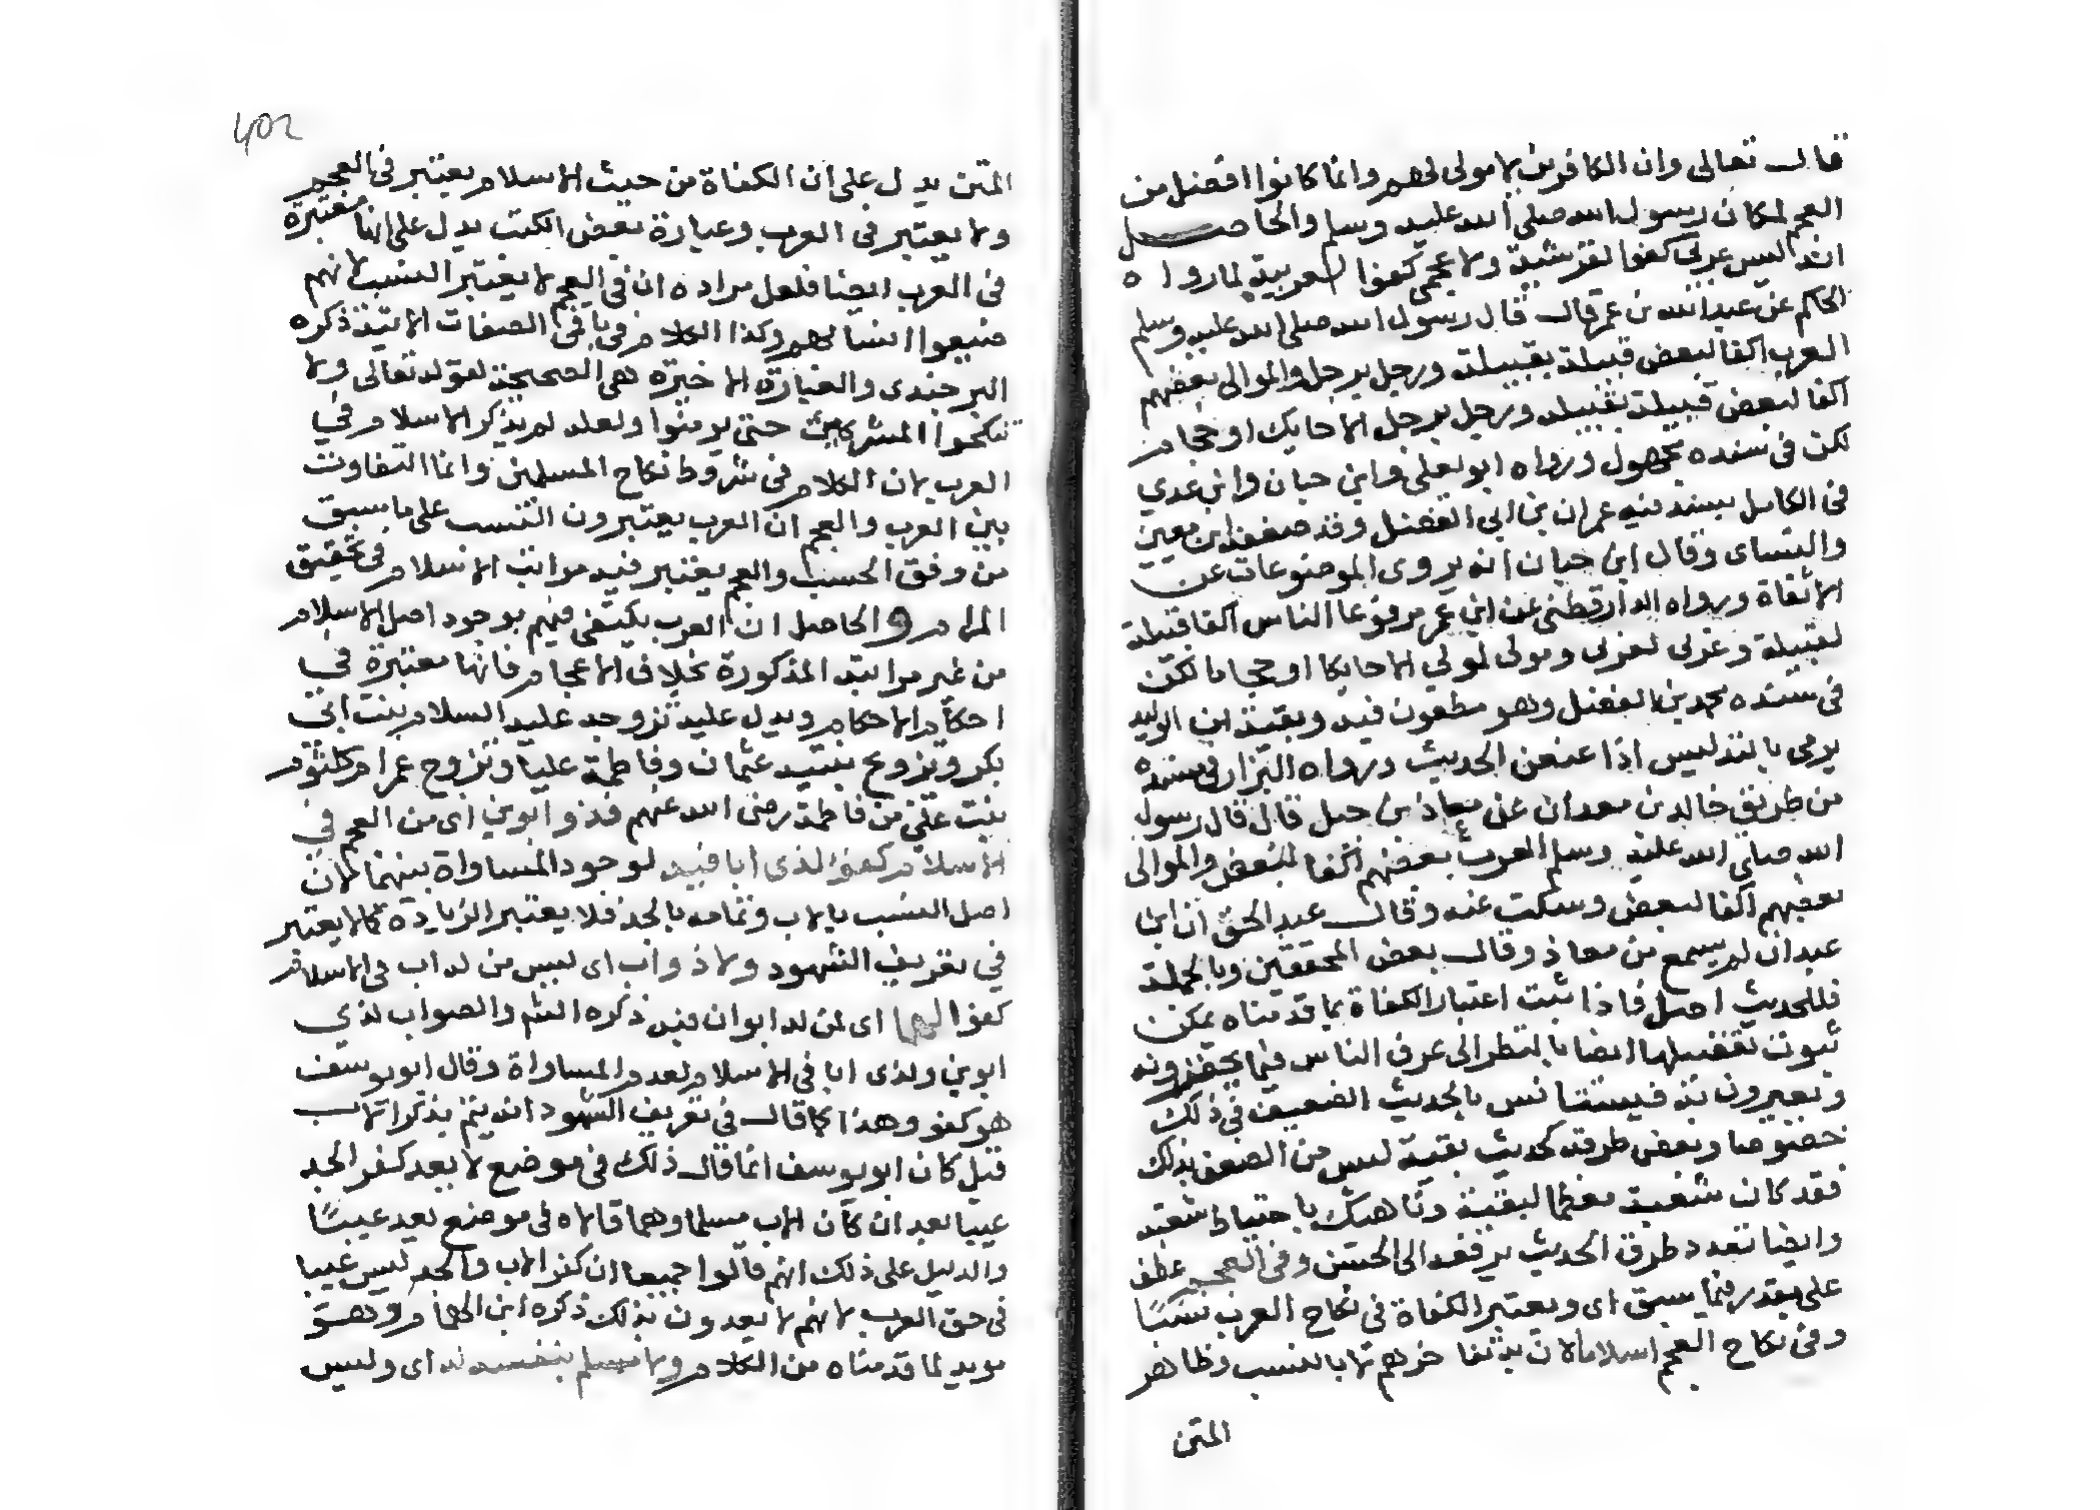 قال تعالى وان الكافرين لا مولى لهم وانما كانوا افضل من
العجم لمكان رسول الله صلى الله عليه وسلم والحاصل
انه ليس عربي كفوا لقرشية ولا عجمي كفوا لعربية لما رواه
الحاكم عن عبد الله بن عمر قال قال رسول الله صلى الله عليه وسلم
العرب اكفا لبعض قبيلة بقبيلة ورجل برجل والموالى بعضهم
اكفا لبعض قبيلة بقبيلة ورجل برجل الا حايك او حجام
لكن فى سنده مجهول ورواه ابو يعلى وابن حبان وابن عدي
فى الكامل بسند فيه عمران بن ابى الفضل وقد ضعفه ابن معين
والنساى وقال ابن حبان انه يروى الموضوعات عن
الاثقاة ورواه الدارقطنى عن ابن عمر مرفوعا الناس اكفا قبيلة
لقبيلة وعربى لعربى ومولى لمولى الا حايكا او حجاما لكن
فى سنده محمد بن الفضل وهو مطعون فيه وبقية ابن الوليد
يرمى بالتدليس اذا عنعن الحديث ورواه البزار فى سنده
من طريق خالد بن معدان عن معاذ بن جبل قال قال رسول
الله صلى الله عليه وسلم العرب بعضهم اكفا لبعض والموالى
بعضهم اكفا لبعض وسكت عنه وقال عبد الحق ان ابن
عبدان لم يسمع من معاذ وقال بعض المحققين وبالجملة
فللحديث اصل فاذا ثبت اعتبار الكفاة بما قدمناه يمكن
ثبوت تفصيلها ايضا بالنظر الى عرف الناس فيما يحقرونه
ويعيرون به فيستانس بالحديث الضعيف فى ذلك
خصوصا وبعض طرقه كحديث بقية ليس من الضعف بذلك
فقد كان شعبة معظما لبقية وناهيك باحتياط شعبة
وايضا تعدد طرق الحديث يرفعه الى الحسن وفى العجم عطف
على بقدر فيما سبق اى ويعتبر الكفاة فى نكاح العرب نسبا
وفى نكاح العجم اسلاما لان به تفاخرهم لا بالنسب وظاهر
المتن
٤٥٢
المتن يدل على ان الكفاة من حيث الاسلام يعتبر فى العجم
ولا يعتبر فى العرب وعبارة بعض الكتب يدل على انها معتبرة
فى العرب ايضا فلعل مراده ان فى العجم لا يعتبر النسب لانهم
ضيعوا انسابهم وكذا الكلام فى باقى الصفات الاتية ذكره
البرجندى والعبارة الاخيرة هى الصحيحة لقوله تعالى ولا
تنكحوا المشركين حتى يومنوا ولعله لم يذكر الاسلام في
العرب لان الكلام فى شروط نكاح المسلمين وانما التفاوت
بين العرب والعجم ان العرب يعتبرون النسب على ما سبق
من وفق الحسب والعجم يعتبر فيه مراتب الاسلام فى تحقيق
المرام والحاصل ان العرب يكتفى فيهم بوجود اصل الاسلام
من غير مراتبه المذكورة بخلاف الاعجام فانها معتبرة في
احكام الاحكام ويدل عليه تزوجه عليه السلام بنت ابى
بكر وتزوج بنتيه عثمان وفاطمة عليا وتزوج عمر ام كلثوم
بنت علي من فاطمة رضى الله عنهم فذو ابوين اى من العجم في
الاسلام كفؤ لذى ابا فيه لوجود المساواة بينهما لان
اصل النسب بالاب وتمامه بالجد فلا يعتبر الزيادة كما لا يعتبر
في تعريف الشهود ولا ذو اب اى ليس من له اب فى الاسلام
كفوا لهما اى لمن له ابوان فيه ذكره الشم والصواب لذي
ابوين ولذى ابا فى الاسلام لعدم المساواة وقال ابو يوسف
هو كفو وهذا كما قال فى تعريف الشهود انه يتم بذكر الاب
قيل كان ابو يوسف انما قال ذلك فى موضع لا يعد كفر الجد
عيبا بعد ان كان الاب مسلما وهما قالاه فى موضع يعد عيبًا
والدليل على ذلك انهم قالوا جميعا ان كفر الاب والجد ليس عيبا
فى حق العرب لانهم لا يعدون بذلك ذكره ابن الهمام وهو
مويد لما قدمناه من الكلام ولا مسلم بنفسه له اى وليس